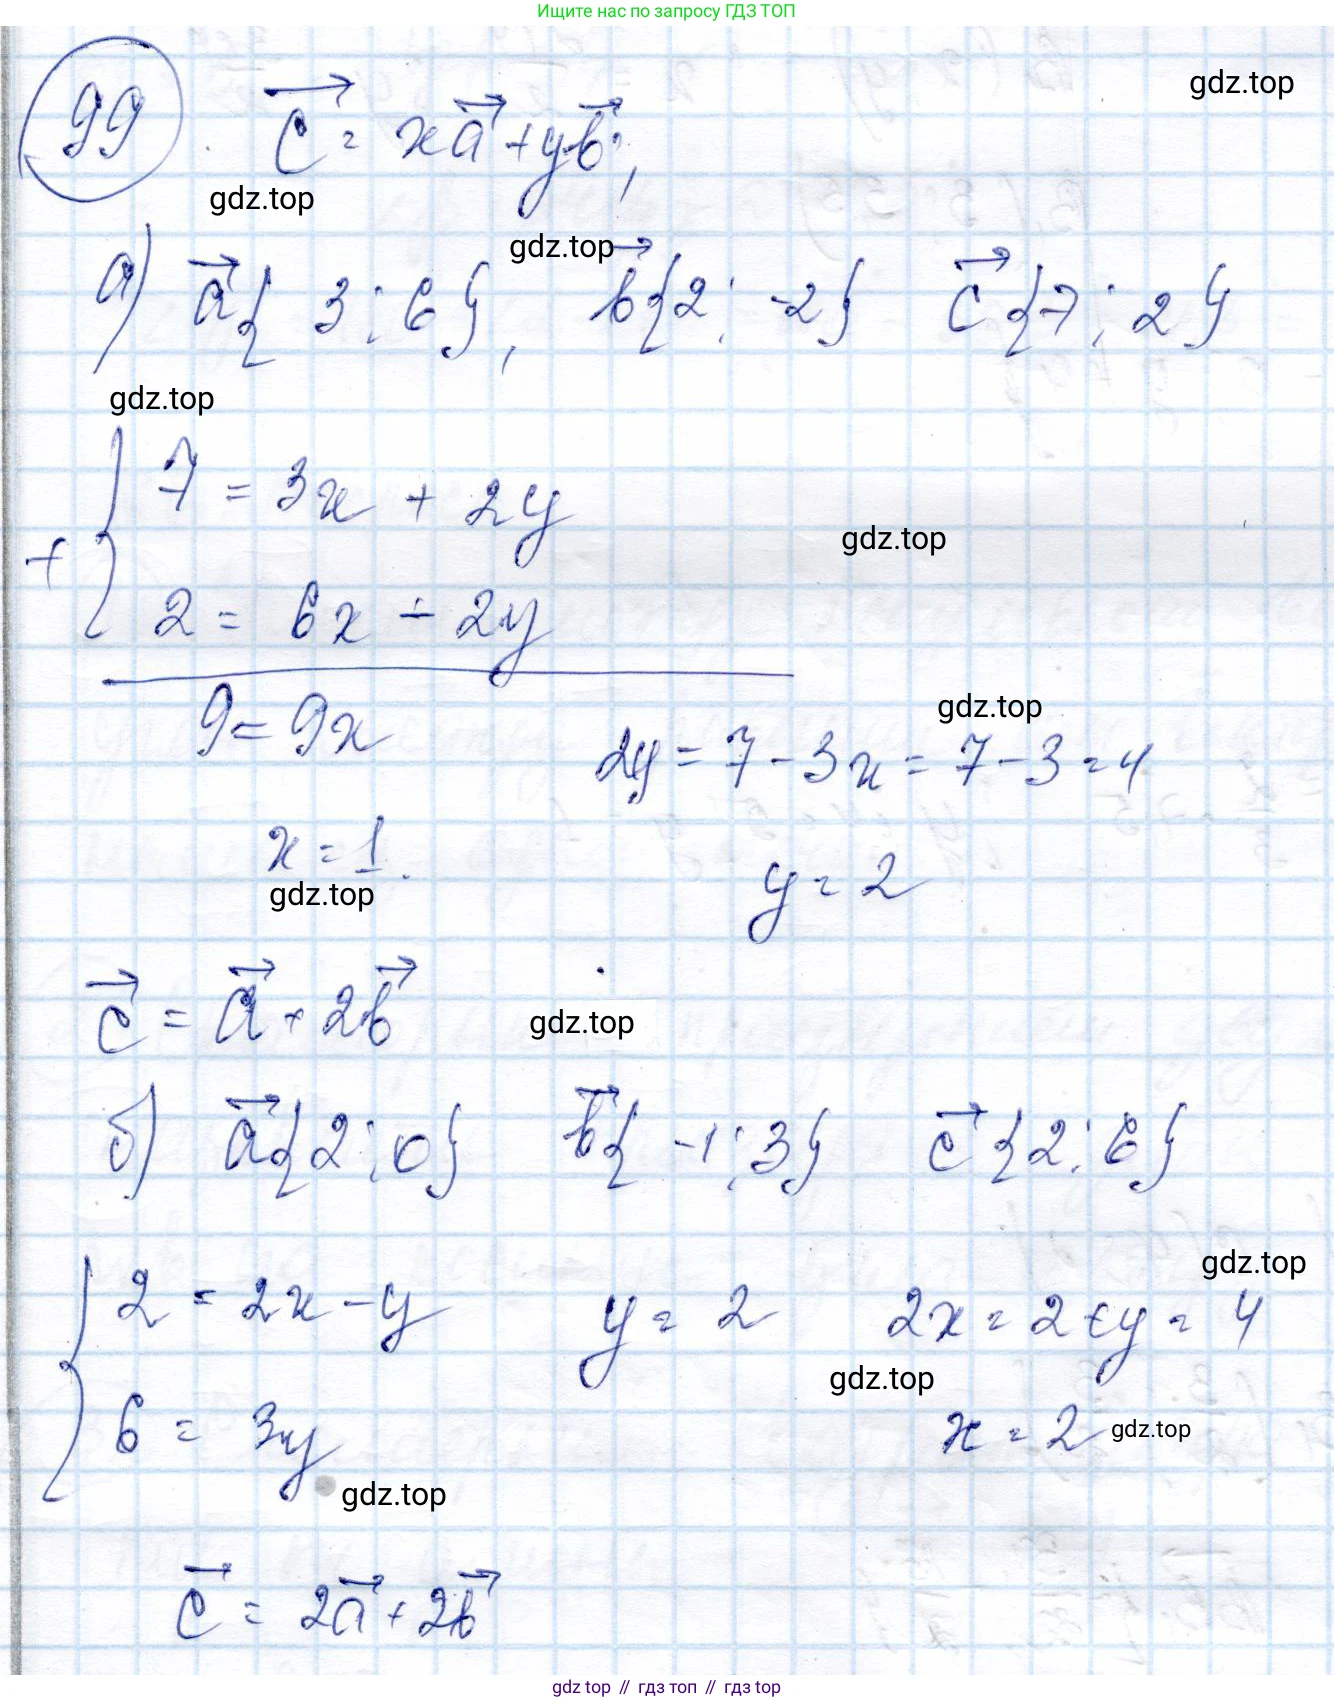 Ищите нас по запросу ГДЗ ТОП
gdz.top
99. c = xa + yb;
gdz.top
gdz.top
а) a{3; 6}, b{2; -2} c{7; 2}
gdz.top
7 = 3x + 2y
gdz.top
+
2 = 6x - 2y
9 = 9x
gdz.top
2y = 7 - 3x = 7 - 3 = 4
x = 1.
gdz.top
y = 2
c = a + 2b
gdz.top
б) a{2; 0} b{-1; 3} c{2; 6}
gdz.top
2 = 2x - y y = 2 2x = 2 + y = 4
gdz.top
6 = 3y x = 2 gdz.top
gdz.top
c = 2a + 2b
gdz top // гдз топ // gdz top